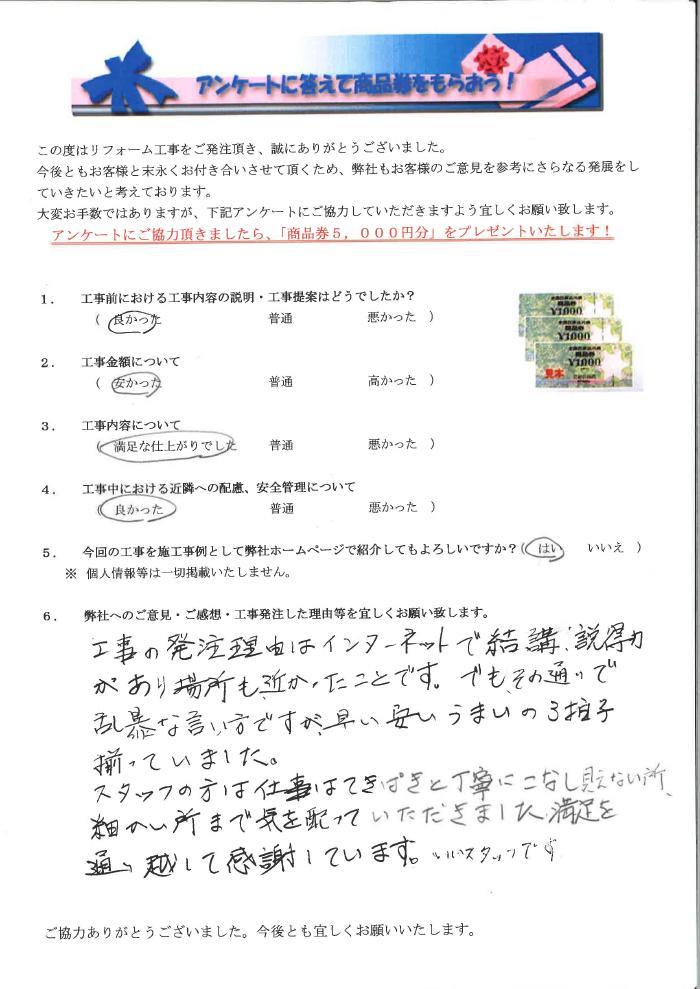 アンケートに答えて商品券をもらおう！
この度はリフォーム工事をご発注頂き、誠にありがとうございました。
今後ともお客様と末永くお付き合いさせて頂くため、弊社もお客様のご意見を参考にさらなる発展をし
ていきたいと考えております。
大変お手数ではありますが、下記アンケートにご協力していただきますよう宜しくお願い致します。
アンケートにご協力頂きましたら、「商品券５，０００円分」をプレゼントいたします！
１． 工事前における工事内容の説明・工事提案はどうでしたか？
（ 良かった 普通 悪かった ）
商品券
¥1,000
商品券
¥1,000
商品券
¥1,000
見本
２． 工事金額について
（ 安かった 普通 高かった ）
３． 工事内容について
（ 満足な仕上がりでした 普通 悪かった ）
４． 工事中における近隣への配慮、安全管理について
（ 良かった 普通 悪かった ）
５． 今回の工事を施工事例として弊社ホームページで紹介してもよろしいですか？（ はい いいえ ）
※ 個人情報等は一切掲載いたしません。
６． 弊社へのご意見・ご感想・工事発注した理由等を宜しくお願い致します。
工事の発注理由はインターネットで結講、説得力
があり場所も近かったことです。でもその通りで
乱暴な言い方ですが、早い安いうまいの3拍子
揃っていました。
スタッフの方は仕事はてきぱきと丁寧にこなし見えない所、
細かい所まで気を配っていただきました、満足を
通り越して感謝しています。いいスタッフです
ご協力ありがとうございました。今後とも宜しくお願いいたします。